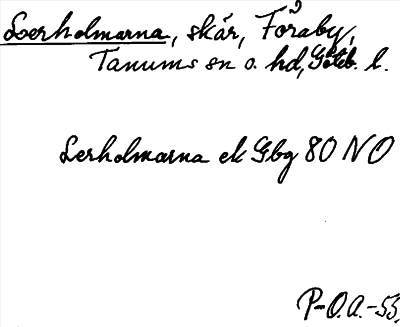 Lerholmarna, skär, Foraby,
Tanums sn o. hd, Göteb. l.
Lerholmarna ek Gbg 80 NO
P-O.A.-53.